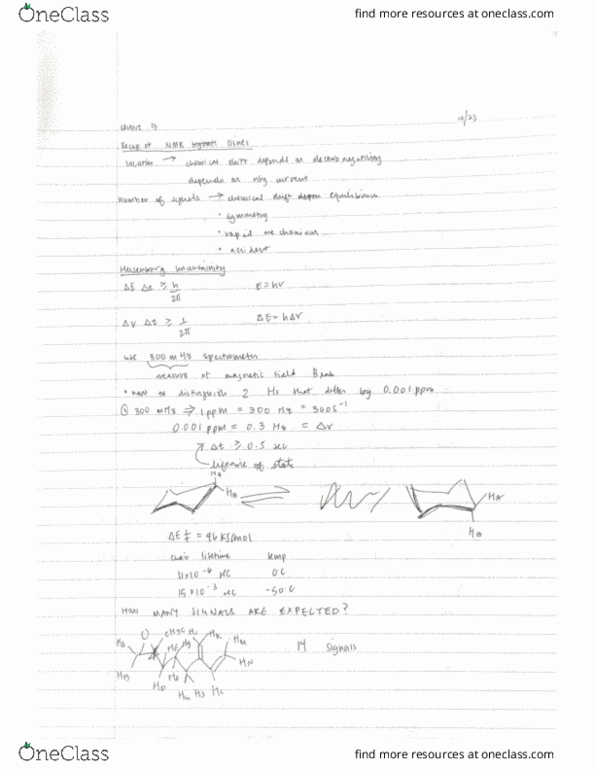 OneClass
find more resources at oneclass.com
10/23
Recap of NMR
location → chemical shift depends on electronegativity
depends on ring current
number of signals → chemical shift equilibrium
• symmetry
• rapid
• accident
Heisenberg uncertainty
ΔE Δt ≥ h/2π E=hν
Δν Δt ≥ 1/2π ΔE=hΔν
use 300 mHz spectrometer
measure of magnetic field
• want to distinguish 2 Hs that differ by 0.001 ppm
@ 300 mHz ⇒ 1 ppm = 300 Hz = 300 s⁻¹
0.001 ppm = 0.3 Hz = Δν
Δt ≥ 0.5 sec
lifetime of state
HA
HB
HA
HB
ΔE‡ = 46 kJ/mol
chair lifetime temp
11×10⁻⁶ sec 0°C
15×10⁻³ sec -50°C
HOW MANY SIGNALS ARE EXPECTED?
O
HK
HM
HN
HB
HD
14 signals
OneClass
find more resources at oneclass.com